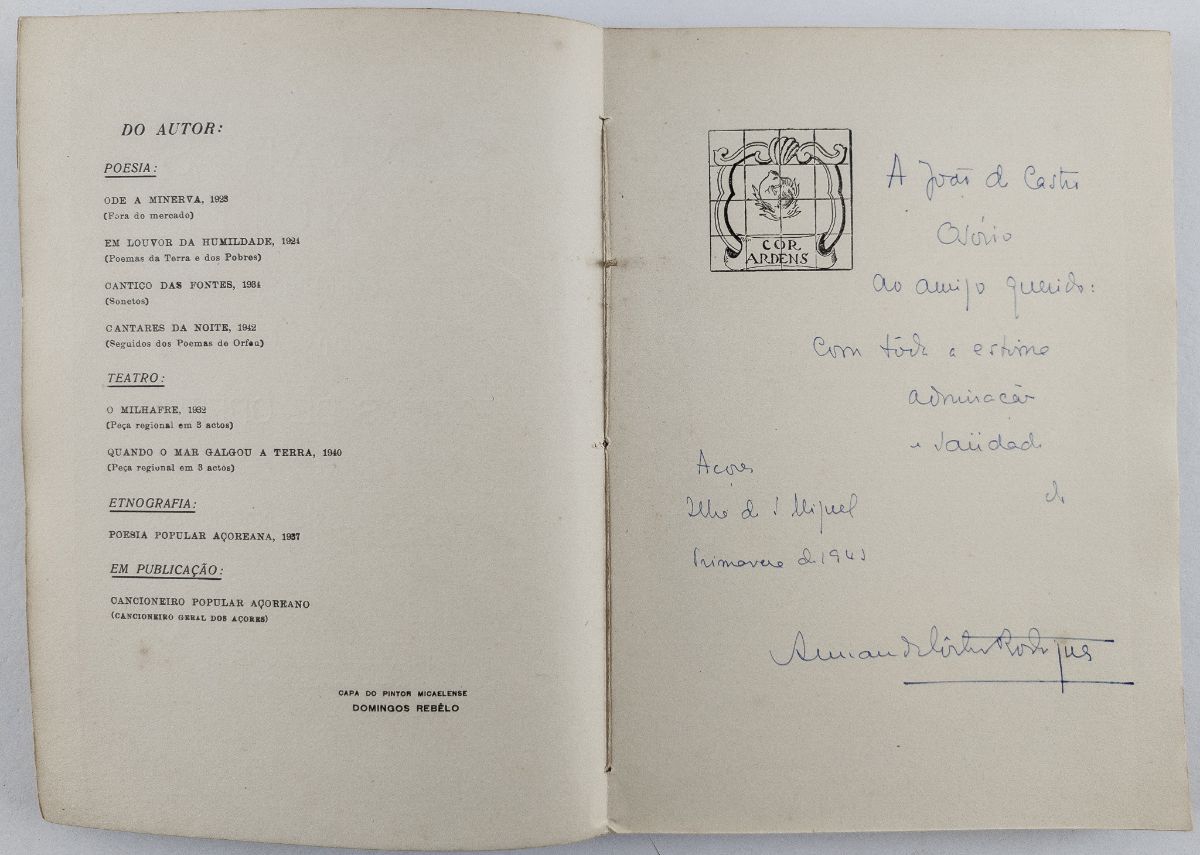 DO AUTOR:
POESIA:
ODE A MINERVA, 1923
(Fora do mercado)
EM LOUVOR DA HUMILDADE, 1924
(Poemas da Terra e dos Pobres)
CANTICO DAS FONTES, 1934
(Sonetos)
CANTARES DA NOITE, 1942
(Seguidos dos Poemas de Orfeu)
TEATRO:
O MILHAFRE, 1932
(Peça regional em 3 actos)
QUANDO O MAR GALGOU A TERRA, 1940
(Peça regional em 3 actos)
ETNOGRAFIA:
POESIA POPULAR AÇOREANA, 1937
EM PUBLICAÇÃO:
CANCIONEIRO POPULAR AÇOREANO
(CANCIONEIRO GERAL DOS AÇORES)
CAPA DO PINTOR MICAELENSE
DOMINGOS REBÊLO
COR
ARDENS
A João de Castro
Osório
ao amigo querido:
Com tôda a estima
admiração
e saüdade
do
Açores
Ilha de S. Miguel
Primavera de 194
Armando Côrtes Rodrigues